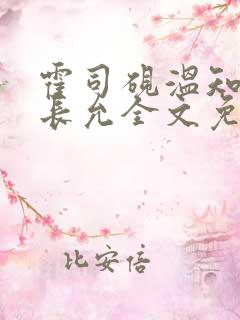 霍司砚温知
长允全文免
比安倍